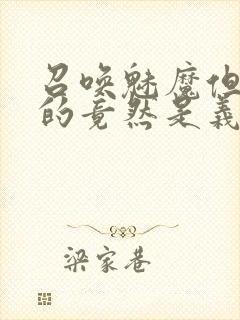 召唤魅魔但
的竟然是义
梁家巷